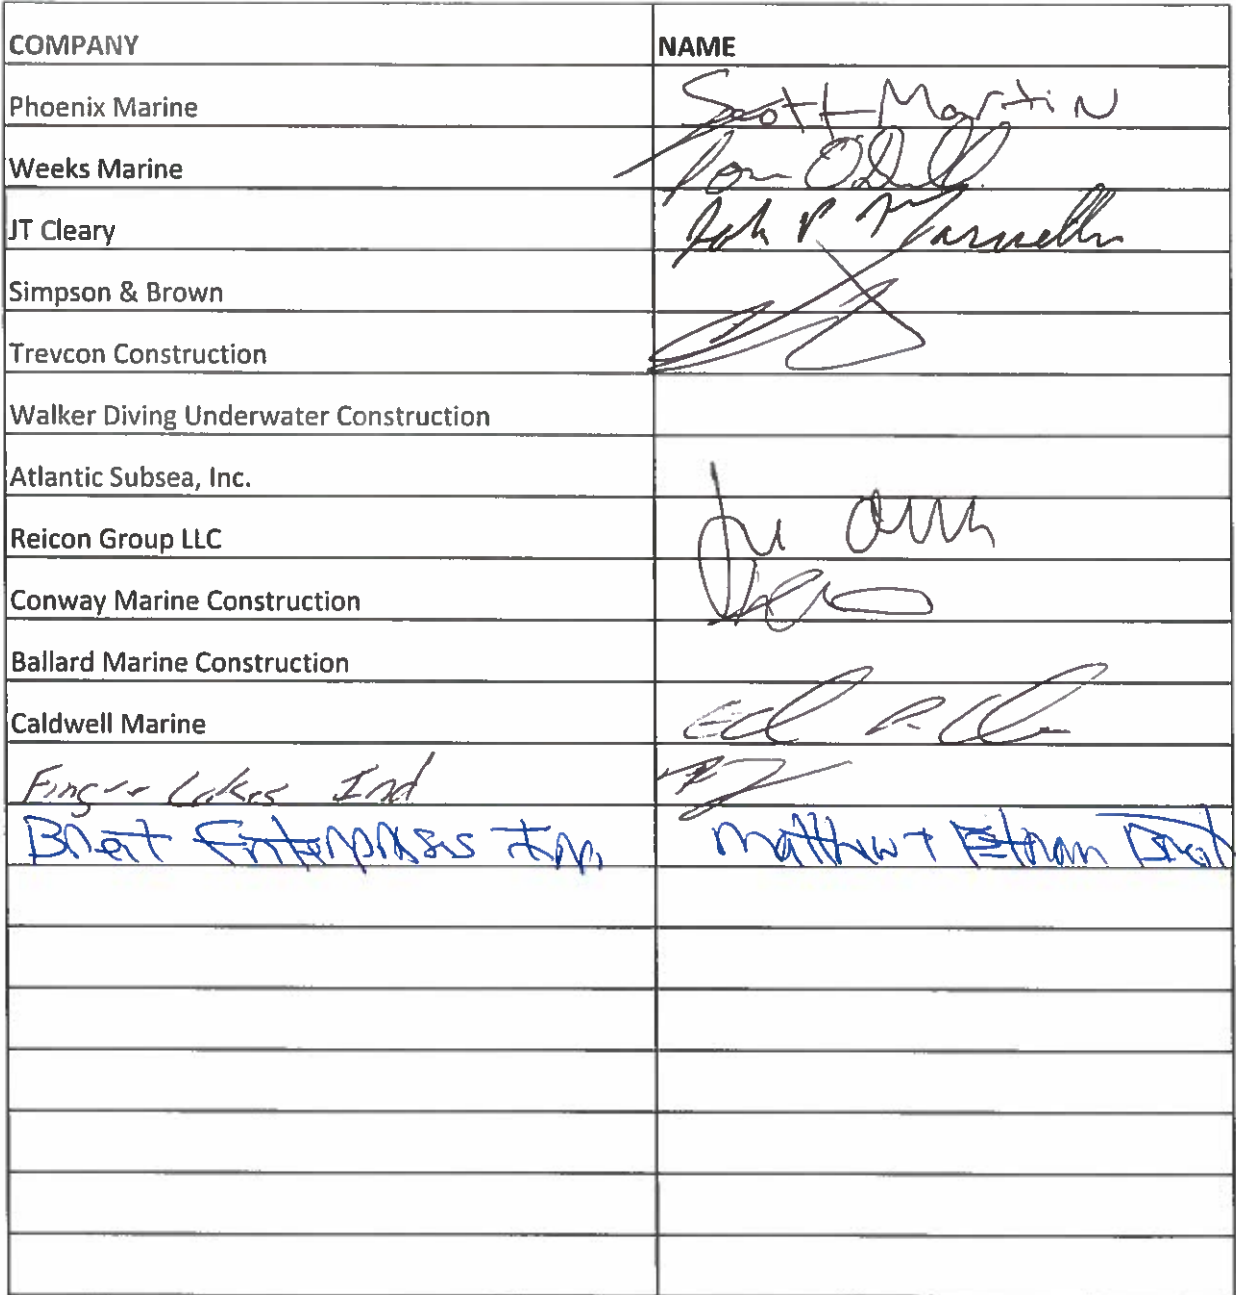 COMPANY NAME
Phoenix Marine Scott Martin
Weeks Marine Tom
JT Cleary
Simpson & Brown
Trevcon Construction
Walker Diving Underwater Construction
Atlantic Subsea, Inc.
Reicon Group LLC
Conway Marine Construction
Ballard Marine Construction
Caldwell Marine
Finger Lakes Ind
Enterprises Matthew + Ethan